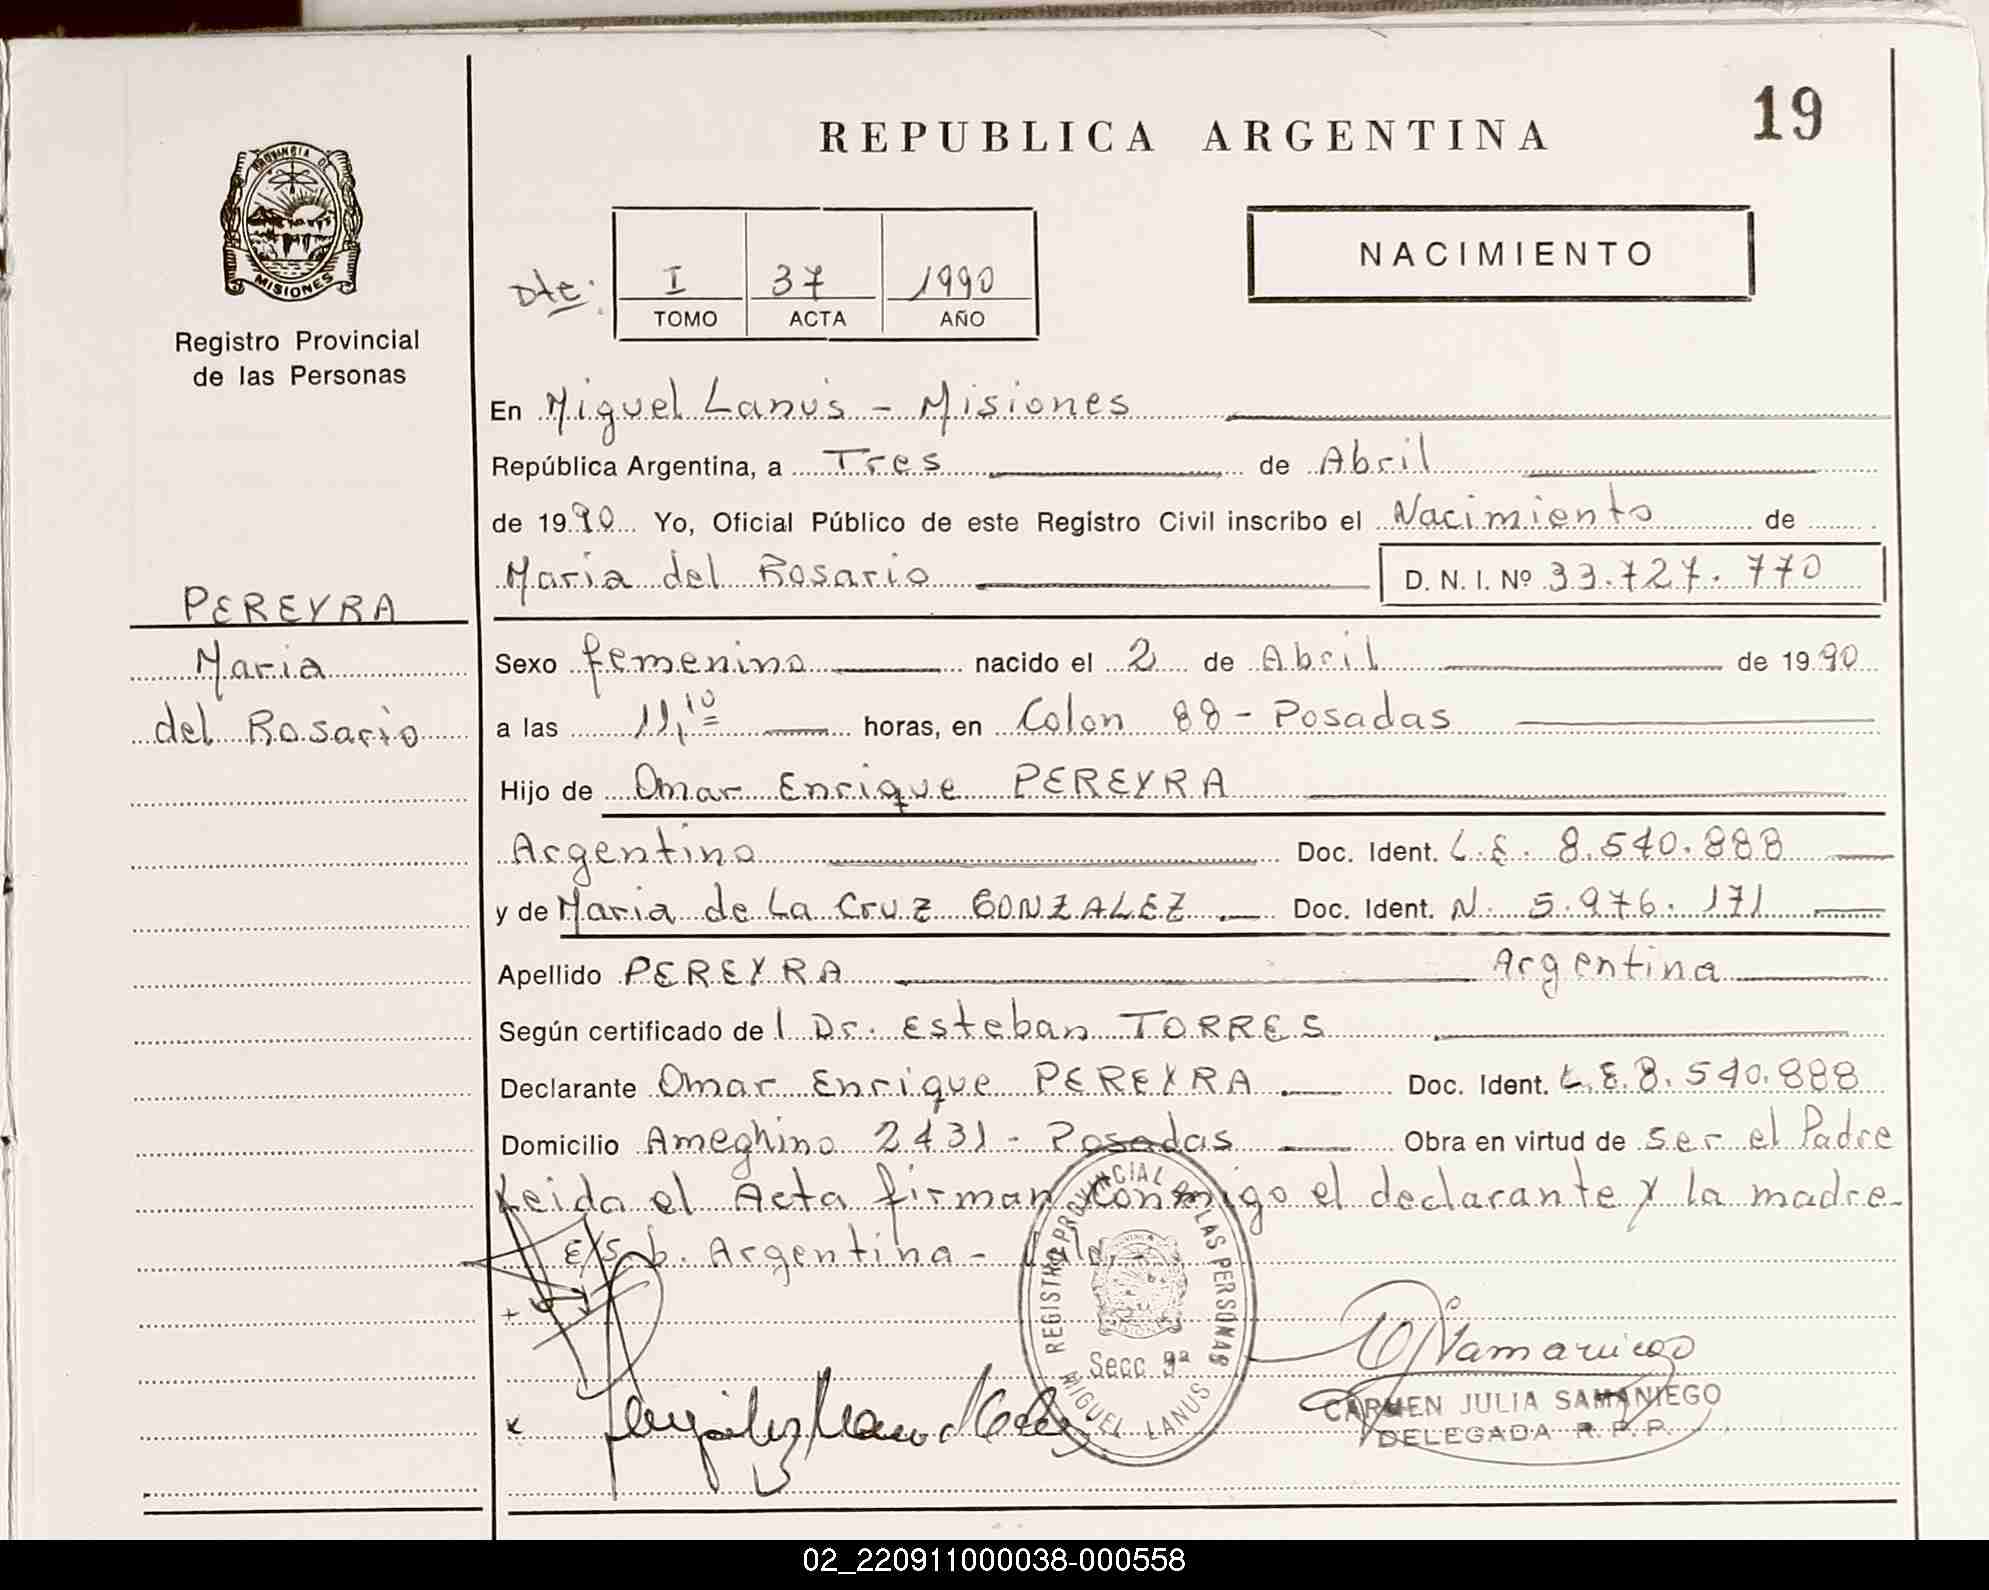 19
REPUBLICA ARGENTINA
PROVINCIA DE
MISIONES
Registro Provincial
de las Personas
NACIMIENTO
Dte: I 37 1990
TOMO ACTA AÑO
En Miguel Lanús - Misiones
República Argentina, a Tres de Abril
de 1990 Yo, Oficial Público de este Registro Civil inscribo el Nacimiento de
Maria del Rosario D. N. I. Nº 33.727.770
PEREYRA
Maria
del Rosario
Sexo femenino nacido el 2 de Abril de 1990
a las 11,10 horas, en Colon 88 - Posadas
Hijo de Omar Enrique PEREYRA
Argentino Doc. Ident. L.E. 8.540.888
y de Maria de La Cruz GONZALEZ Doc. Ident. N. 5.976.171
Apellido PEREYRA Argentina
Según certificado del Dr. Esteban TORRES
Declarante Omar Enrique PEREYRA Doc. Ident. L.E. 8.540.888
Domicilio Ameghino 2431 - Posadas Obra en virtud de ser el Padre
Leida el Acta firman conmigo el declarante y la madre-
E/S b. Argentina - Vale
REGISTRO PROVINCIAL DE LAS PERSONAS
Secc 9ª
MIGUEL LANUS
CARMEN JULIA SAMANIEGO
DELEGADA R. P. P.
02_220911000038-000558